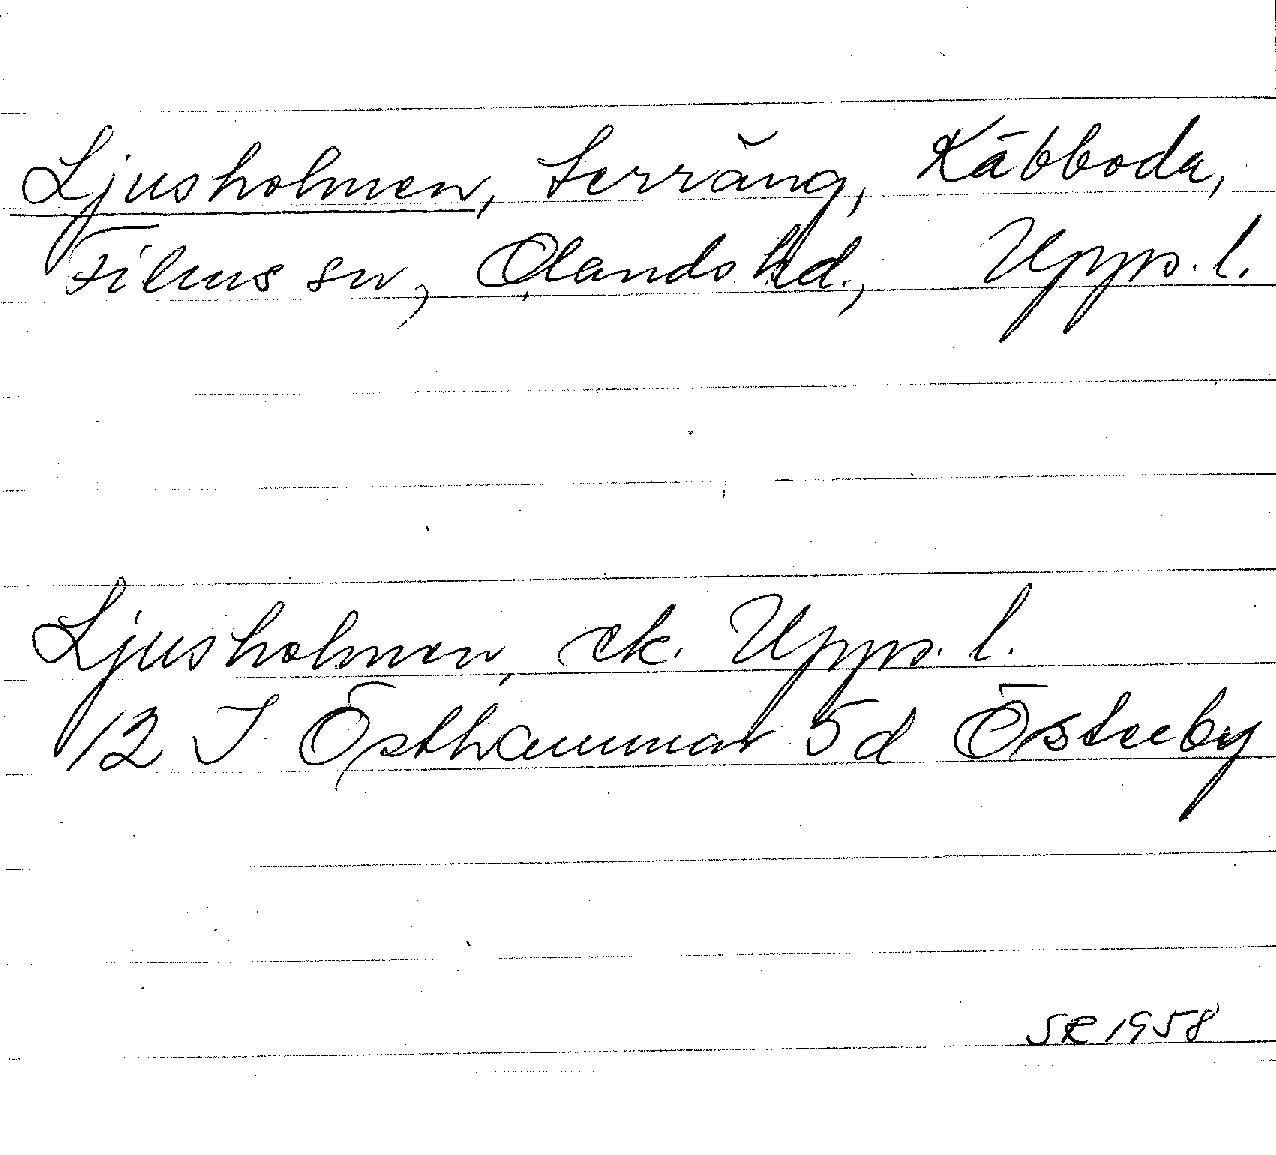 Ljusholmen, terräng, Käbboda,
Films sn, Olands hd., Upps. l.
Ljusholmen, ek. Upps. l.
12 I Östhammar 5d Österby
SR 1958